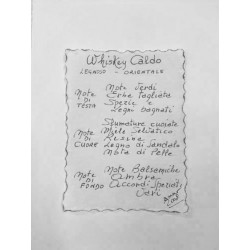 Whiskey Caldo
LEGNOSO - ORIENTALE
NOTE DI TESTA
Note Verdi
Erbe Tagliate
Spezie e
Legni bagnati
NOTE DI CUORE
Sfumature cuoiate
Miele Selvatico
Resine
Legno di Sandalo
Nota di Pelle
NOTE DI FONDO
Note Balsamiche
Ambra
Accordi Speziati